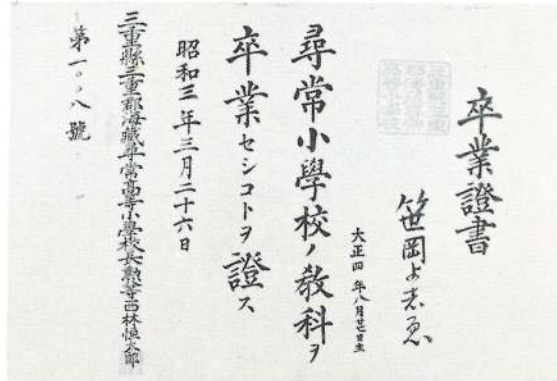 卒業證書
笹岡よ志ゑ
大正四年八月廿七日生
尋常小學校ノ教科ヲ
卒業セシコトヲ證ス
昭和三年三月二十六日
三重縣三重郡海藏尋常高等小學校長勲八等西林恒太郎
第一〇〇八號